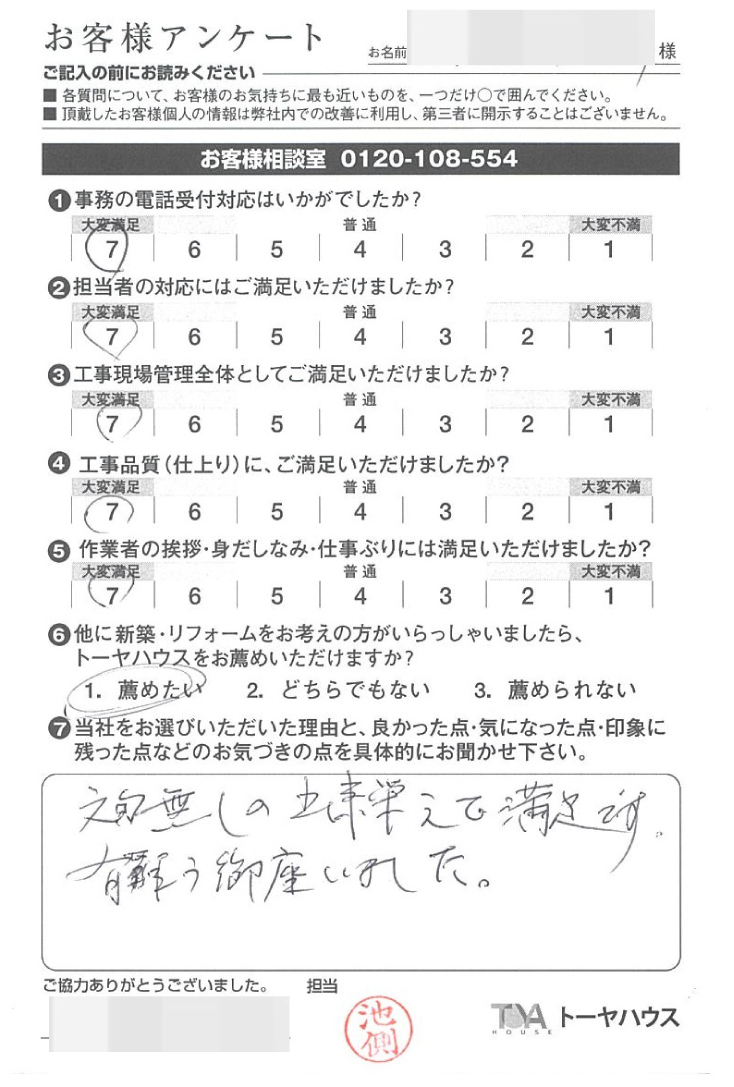 お客様アンケート
お名前 様
ご記入の前にお読みください
■ 各質問について、お客様のお気持ちに最も近いものを、一つだけ○で囲んでください。
■ 頂戴したお客様個人の情報は弊社内での改善に利用し、第三者に開示することはございません。
お客様相談室 0120-108-554
❶事務の電話受付対応はいかがでしたか?
大変満足 普通 大変不満
7 6 5 4 3 2 1
❷担当者の対応にはご満足いただけましたか?
大変満足 普通 大変不満
7 6 5 4 3 2 1
❸工事現場管理全体としてご満足いただけましたか?
大変満足 普通 大変不満
7 6 5 4 3 2 1
❹工事品質(仕上り)に、ご満足いただけましたか?
大変満足 普通 大変不満
7 6 5 4 3 2 1
❺作業者の挨拶・身だしなみ・仕事ぶりには満足いただけましたか?
大変満足 普通 大変不満
7 6 5 4 3 2 1
❻他に新築・リフォームをお考えの方がいらっしゃいましたら、
トーヤハウスをお薦めいただけますか?
1. 薦めたい 2. どちらでもない 3. 薦められない
❼当社をお選びいただいた理由と、良かった点・気になった点・印象に
残った点などのお気づきの点を具体的にお聞かせ下さい。
文句無しの出来栄えで満足です。
有難う御座いました。
ご協力ありがとうございました。 担当
池側
TOYA HOUSE トーヤハウス